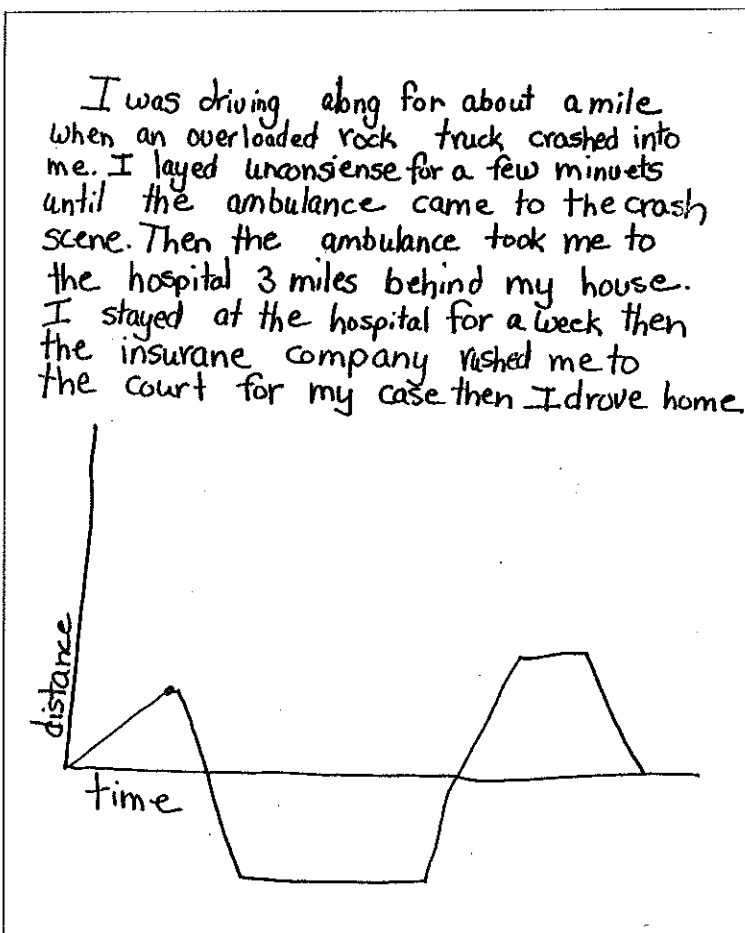 I was driving along for about a mile
when an overloaded rock truck crashed into
me. I layed unconsiense for a few minuets
until the ambulance came to the crash
scene. Then the ambulance took me to
the hospital 3 miles behind my house.
I stayed at the hospital for a week then
the insurane company rushed me to
the court for my case then I drove home
distance
time